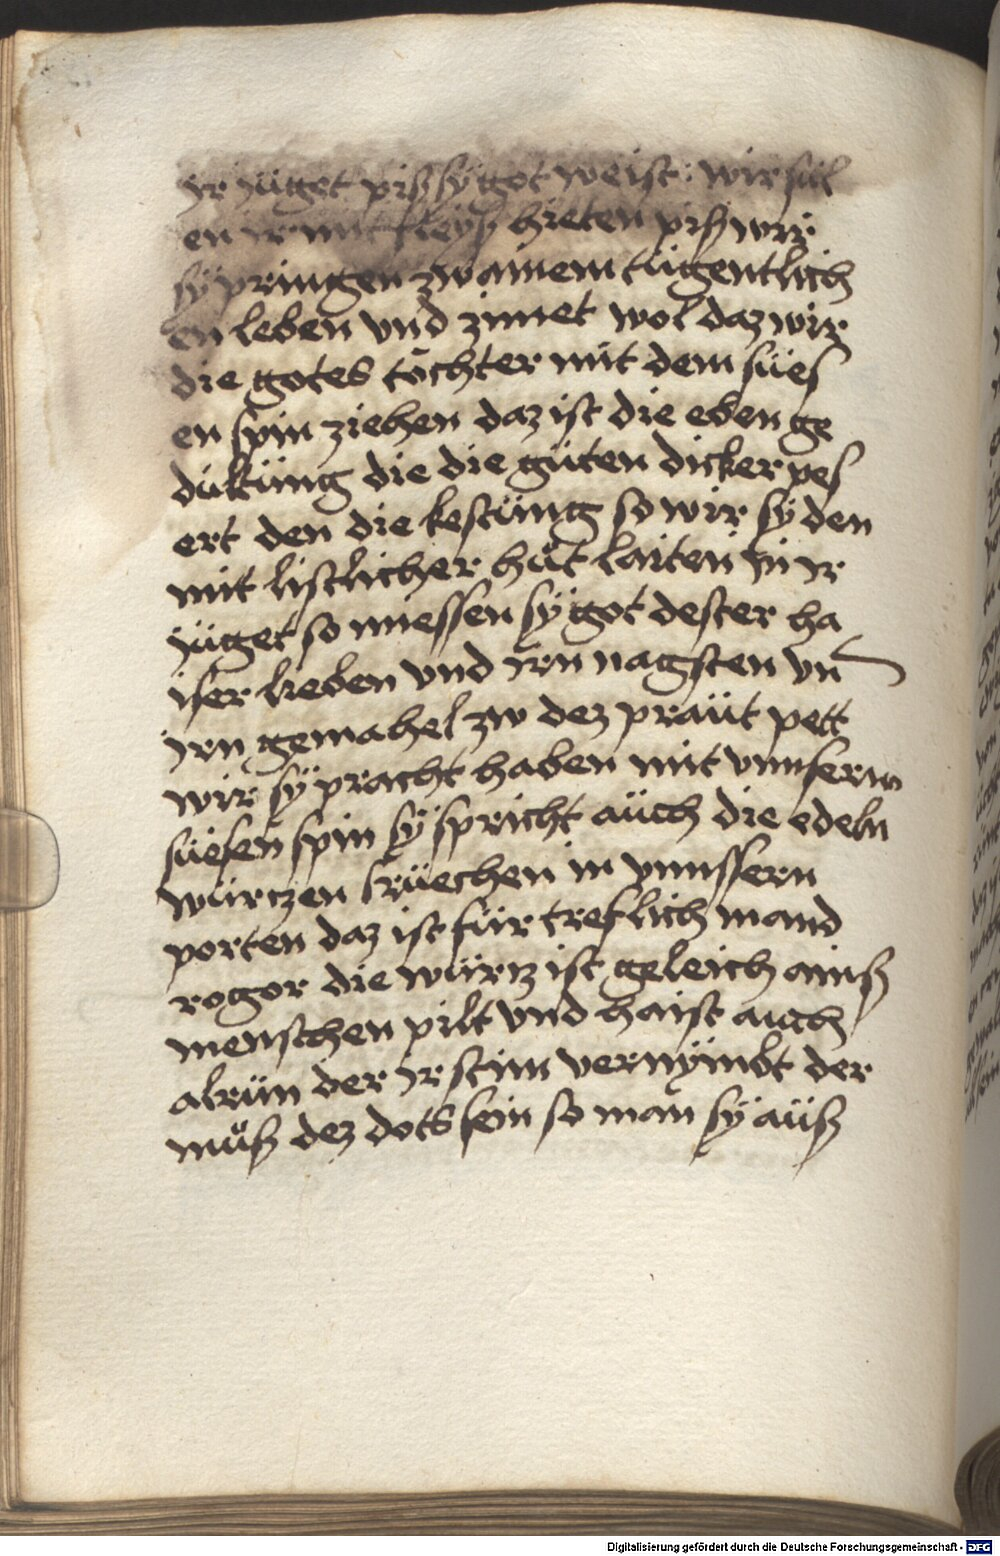 jr jüget pisz sÿ got weist: wir sül
en jr mit fleÿsz hieten pisz wir
sÿ pringen zw ainem tügentlich
en leben vnd zimet wol daz wir
die gotes töchter mit dem süeſ
en spin ziehen daz ist die eben ge
dultüng die die güten dicker peſ
ert den die kestüng so wir sÿ den
mit listlicher hüt laiten jn jr
jüget so miessen sÿ got dester ha
iser lieben vnd jrn nagsten vn̄
jrn gemahel zw dez praüt pett
wir sÿ pracht haben mit vnnserm
süesen spin sÿ spricht aüch die edeln
würczen krüechen in vnnssern
porten daz ist für treflich mand
rogor die würtz ist geleich ainß
menschen pilt vnd haist auch
alrün der jr stim vernÿmbt der
müß dez dots sein so man sÿ aüß
Digitalisierung gefördert durch die Deutsche Forschungsgemeinschaft - DFG